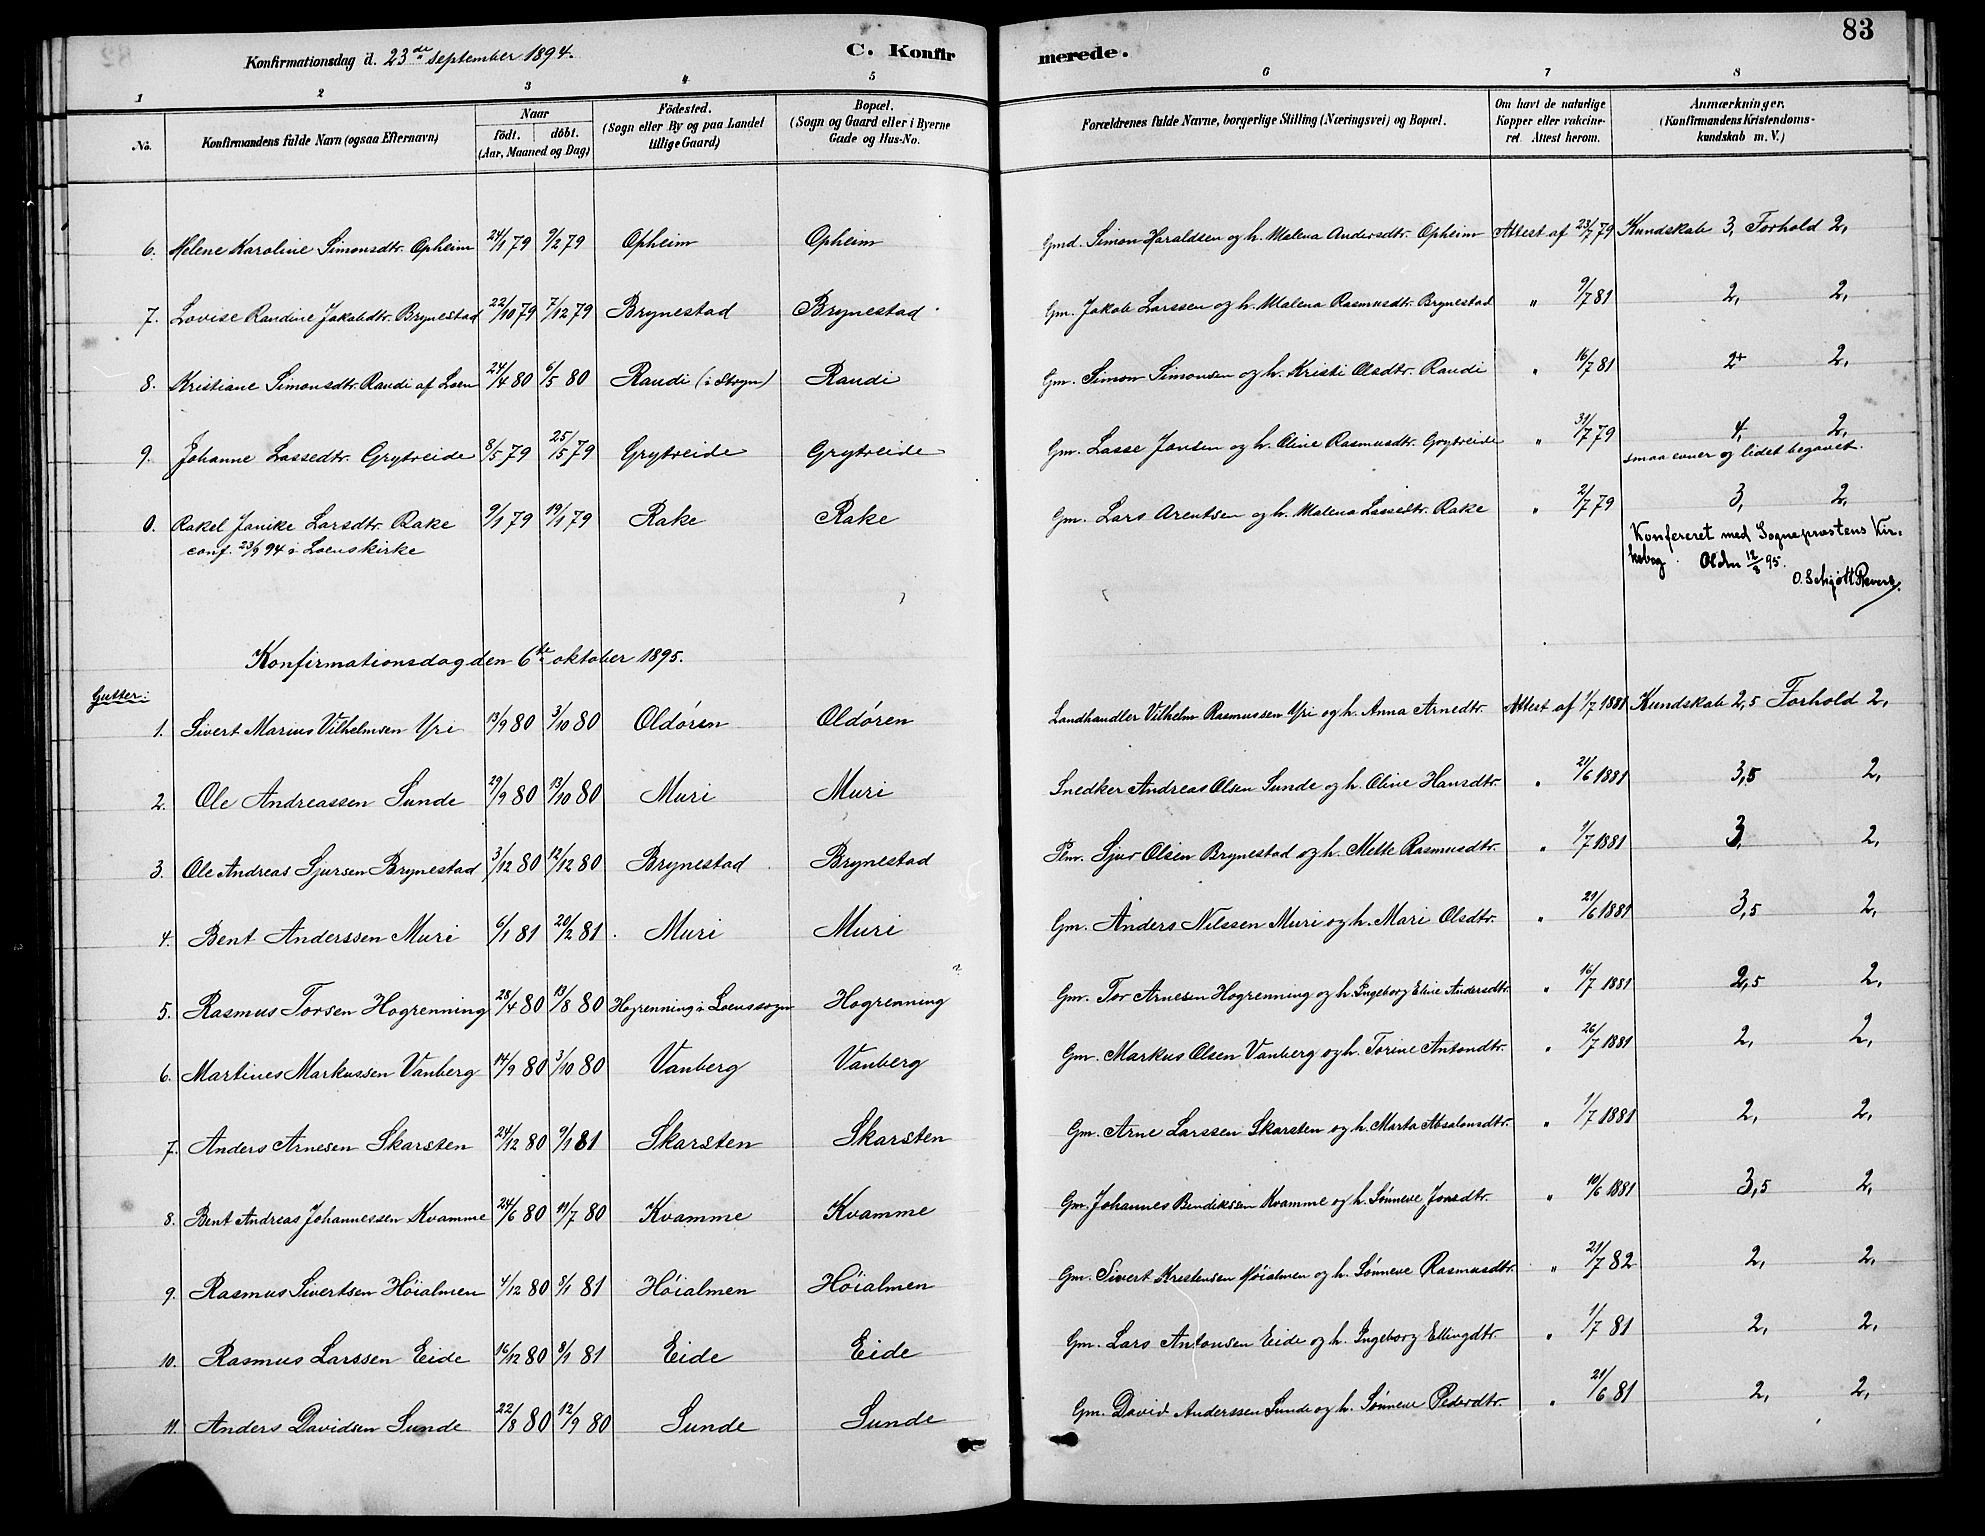 83
Konfirmationsdag d. 23de september 1894.
C. Konfirmerede.
1 2 3 4 5 6 7 8
No.
Konfirmandens fulde Navn (ogsaa Efternavn)
Naar
födt. döbt.
(Aar, Maaned og Dag)
Födested.
(Sogn eller By og paa Landet
tillige Gaard)
Bopæl.
(Sogn og Gaard eller i Byerne
Gade og Hus-No.
Forældrenes fulde Navne, borgerlige Stilling (Næringsvei) og Bopæl.
Om havt de naturlige
Kopper eller vakcine-
ret. Attest herom.
Anmærkninger.
(Konfirmandens Kristendoms-
kundskab m. V.)
6. Helene Karoline Simonsdtr. Opheim 24/1 79 9/2 79 Opheim Opheim Gmd. Simon Haraldsen og h. Malena Andersdtr. Opheim Attest af 23/7 79 Kundskab 3, Forhold 2,
7. Lovise Randine Jakobdtr. Brynestad 22/10 79 7/12 79 Brynestad Brynestad Gm. Jakob Larssen og h. Malena Rasmusdtr. Brynestad " 9/7 81 2, 2,
8. Kristiane Simonsdtr. Raudi af Loen 24/4 80 6/5 80 Raudi (i Stryn) Raudi Gm. Simon Simonsen og h. Kristi Olsdtr. Raudi " 16/7 81 2+ 2,
9. Johanne Lassedtr. Grytreide 8/5 79 25/5 79 Grytreide Grytreide Gm. Lasse Jansen og h. Oline Rasmusdtr. Grytreide " 31/7 79 4, 2,
smaa evner og lidet begavet.
0. Rakel Janike Larsdtr. Rake 9/1 79 19/1 79 Rake Rake Gm. Lars Arentsen og h. Malena Lassedtr. Rake " 2/7 79 3, 2,
conf. 23/9 94 i Loenskirke
Konfereret med Sognepræstens Kir-
kebog. Olden 12/3 95.
O. Schjött
Konfirmationsdag den 6te oktober 1895.
Gutter:
1. Sivert Marius Vilhelmsen Yri 13/9 80 3/10 80 Oldören Oldören Landhandler Vilhelm Rasmussen Yri og h. Anna Arnedtr. Attest af 1/7 1881 Kundskab 2,5 Forhold 2,
2. Ole Andreassen Sunde 29/9 80 13/10 80 Muri Muri Snedker Andreas Olsen Sunde og h. Oline Hansdtr. " 21/6 1881 3,5 2,
3. Ole Andreas Sjursen Brynestad 3/12 80 12/12 80 Brynestad Brynestad Pm. Sjur Olsen Brynestad og h. Mette Rasmusdtr. " 1/7 1881 3, 2,
4. Bent Anderssen Muri 6/1 81 20/2 81 Muri Muri Gm. Anders Nilssen Muri og h. Mari Olsdtr. " 21/6 1881 3,5 2,
5. Rasmus Torsen Hogrenning 28/4 80 13/8 80 Hogrenning i Loenssogn Hogrenning Gm. Tor Arnesen Hogrenning og h. Ingeborg Eline Andersdtr. " 16/7 1881 2,5 2,
6. Martines Markussen Vanberg 14/9 80 3/10 80 Vanberg Vanberg Gm. Markus Olsen Vanberg og h. Torine Antondtr. " 26/7 1881 2, 2,
7. Anders Arnesen Skarsten 24/12 80 9/1 81 Skarsten Skarsten Gm. Arne Larssen Skarsten og h. Marta Absalonsdtr. " 1/7 1881 2, 2,
8. Bent Andreas Johannessen Kvamme 24/6 80 11/7 80 Kvamme Kvamme Gm. Johannes Bendiksen Kvamme og h. Sönneve Jonsdtr. " 10/6 1881 3,5 2,
9. Rasmus Sivertsen Höialmen 4/12 80 8/1 81 Höialmen Höialmen Gm. Sivert Kristensen Höialmen og h. Sönneve Rasmusdtr. " 21/7 82 2, 2,
10. Rasmus Larssen Eide 16/12 80 8/1 81 Eide Eide Gm. Lars Antonsen Eide og h. Ingeborg Ellingdtr. " 1/7 81 2, 2,
11. Anders Davidsen Sunde 22/8 80 12/9 80 Sunde Sunde Gm. David Anderssen Sunde og h. Sönneve Pederdtr. " 21/6 81 2, 2,